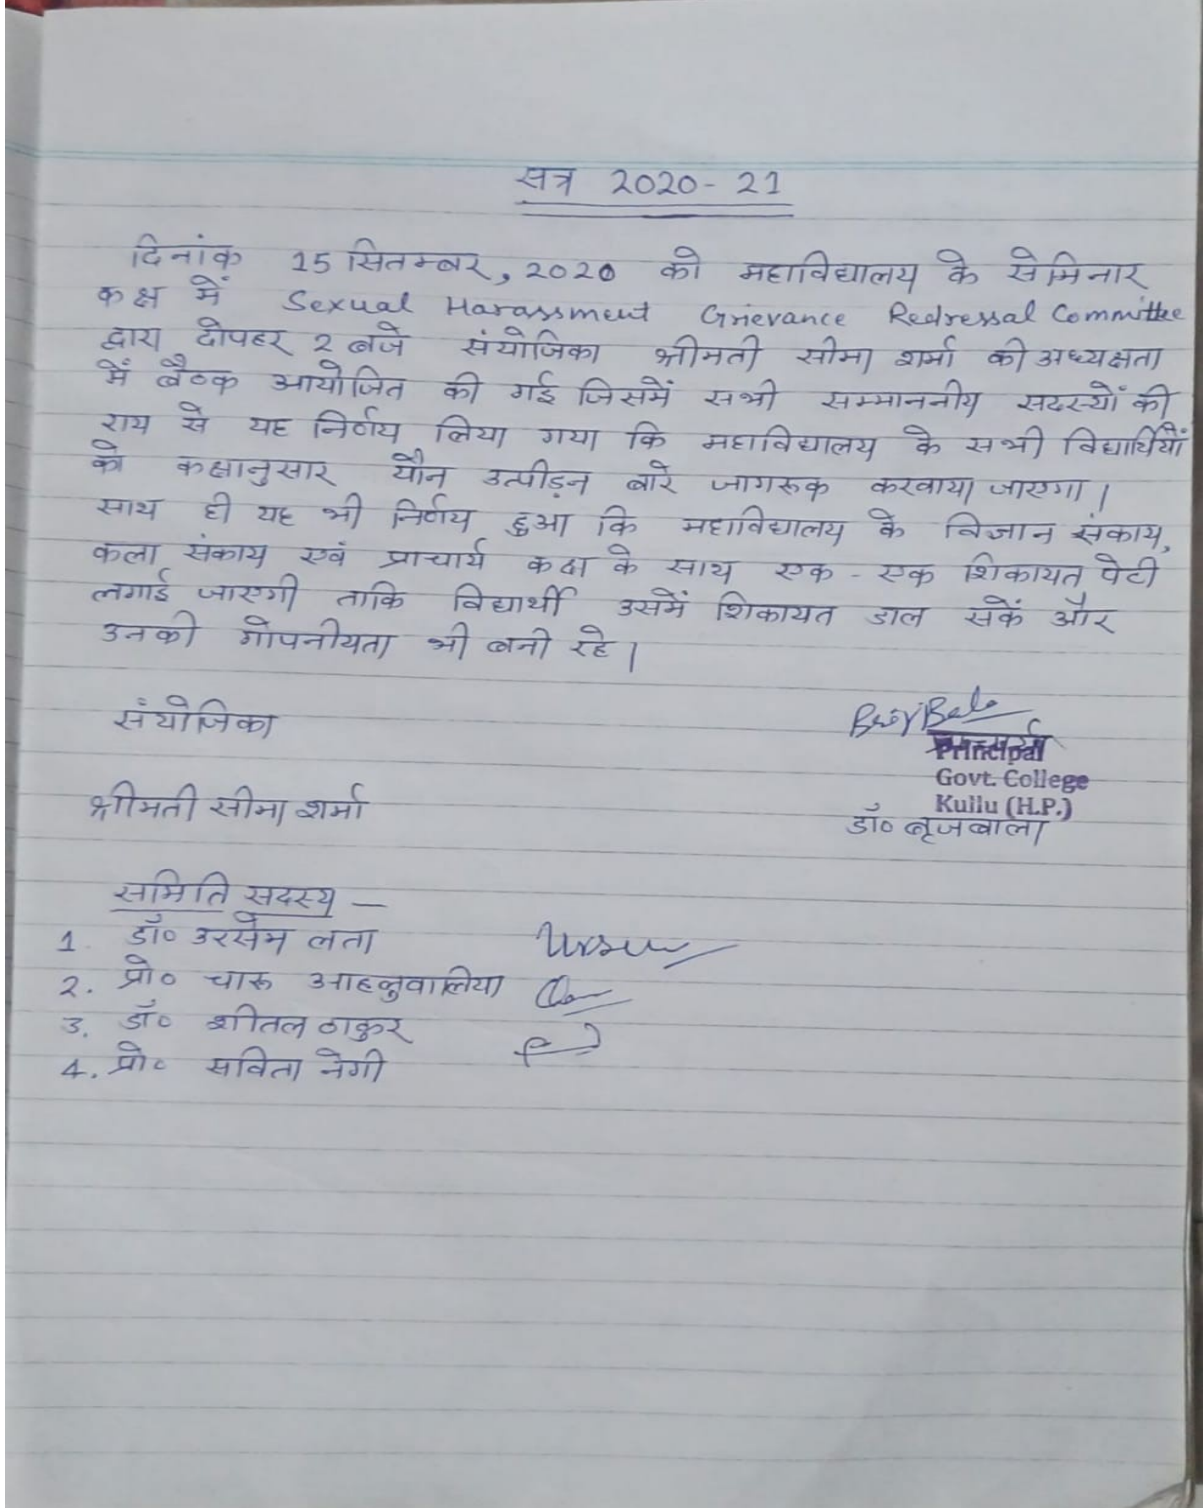 सत्र 2020-21
दिनांक 15 सितम्बर, 2020 को महाविद्यालय के सेमिनार
कक्ष में Sexual Harassment Grievance Redressal Committee
द्वारा दोपहर 2 बजे संयोजिका श्रीमती सीमा शर्मा की अध्यक्षता
में बैठक आयोजित की गई जिसमें सभी सम्माननीय सदस्यों की
राय से यह निर्णय लिया गया कि महाविद्यालय के सभी विद्यार्थियों
को कक्षानुसार यौन उत्पीड़न बारे जागरूक करवाया जाएगा।
साथ ही यह भी निर्णय हुआ कि महाविद्यालय के विज्ञान संकाय,
कला संकाय एवं प्राचार्य कक्ष के साथ एक - एक शिकायत पेटी
लगाई जाएगी ताकि विद्यार्थी उसमें शिकायत डाल सकें और
उनकी गोपनीयता भी बनी रहे।
संयोजिका
Principal
Govt. College
Kullu (H.P.)
श्रीमती सीमा शर्मा
डॉ० बृजबाला
समिति सदस्य —
1. डॉ० उरसेम लता
2. प्रो० चारू आहलुवालिया
3. डॉ० शीतल ठाकुर
4. प्रो० सविता नेगी